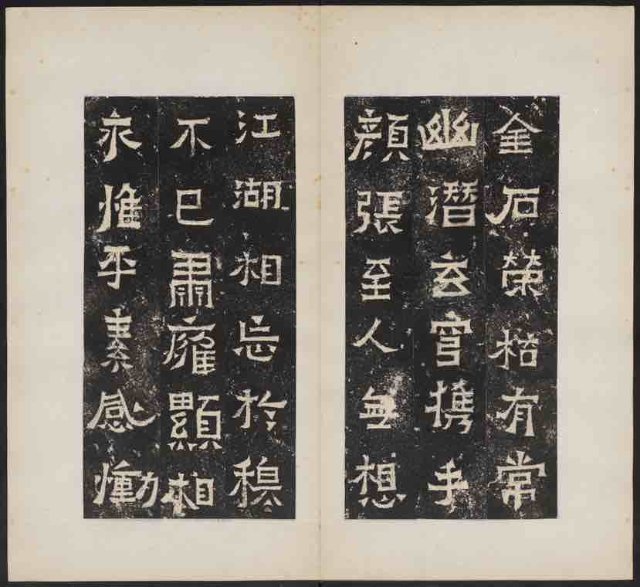 金石榮枯有常
幽潛玄宮携手
顔張至人無想
江湖相忘於穆
不已肅雍顯相
永惟平素感慟